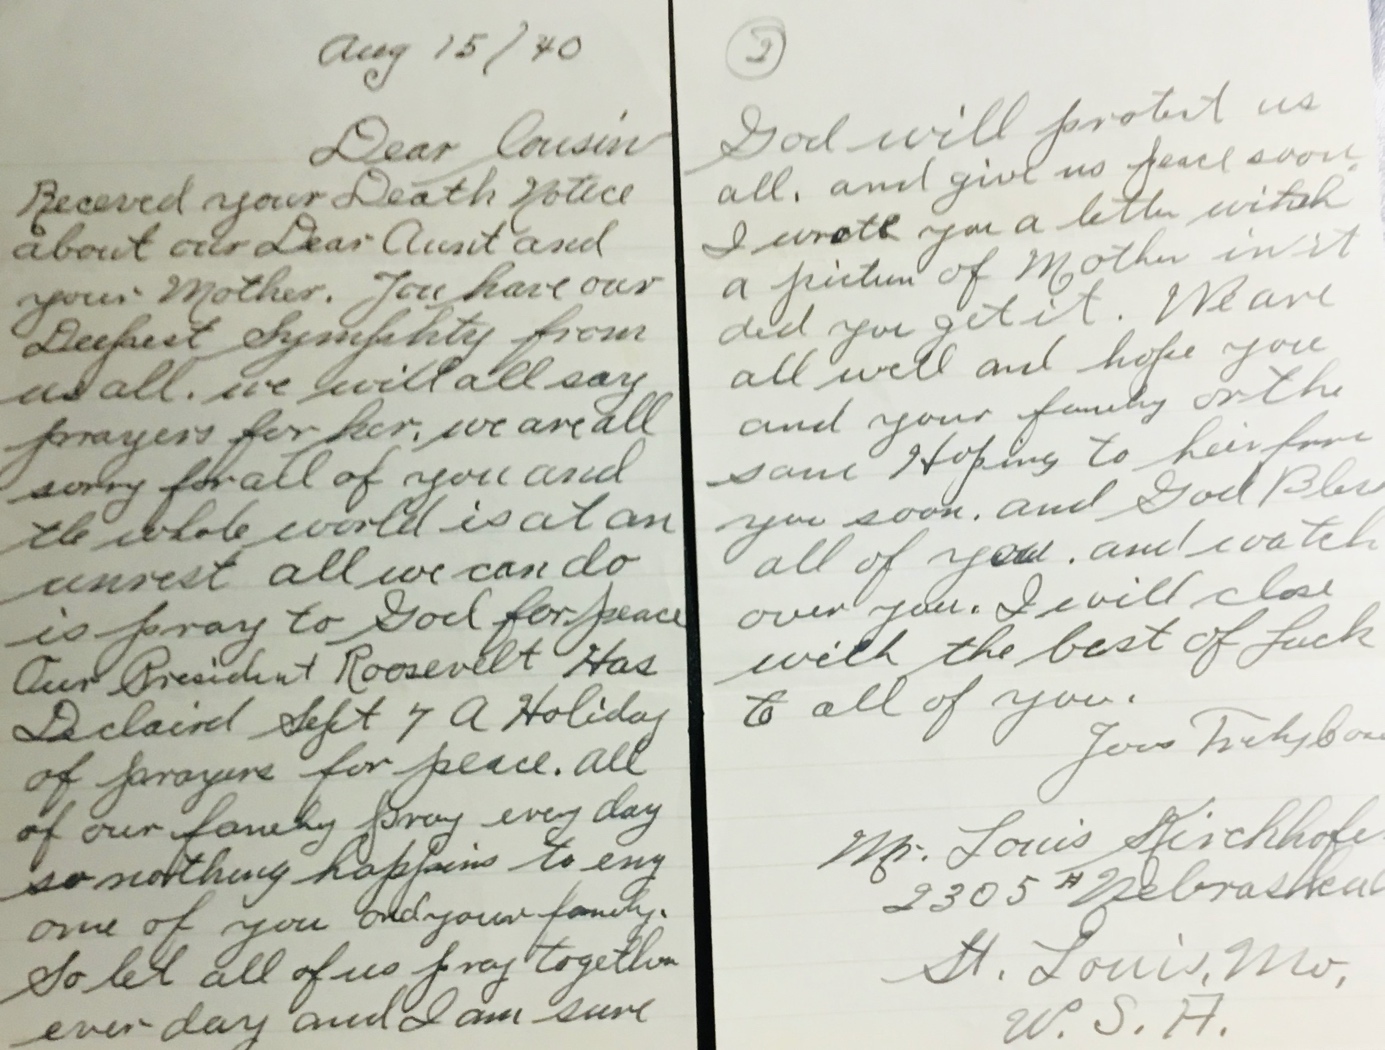 Aug 15/40
Dear Cousin
Receved your Death Notice
about our Dear Aunt and
your Mother. You have our
Deepest Symphty from
us all. we will all say
prayers for her. we are all
sorry for all of you and
the whole world is at an
unrest all we can do
is pray to God for peace
Our President Roosevelt Has
Declaird Sept 7 A Holiday
of prayers for peace. all
of our family pray every day
so nothing happins to eny
one of you and your family.
So let all of us pray together
ever day and I am sure
2
God will protect us
all. and give us peace soon.
I wrote you a letter witch
a picture of Mother in it
did you get it. We are
all well and hope you
and your family or the
same Hoping to heir from
you soon. and God Bless
all of you. and watch
over you. I will close
with the best of Luck
to all of you.
Yors
Mr. Louis Kirchhofe
2305 # Nebraska
St. Louis, Mo,
U. S. A.